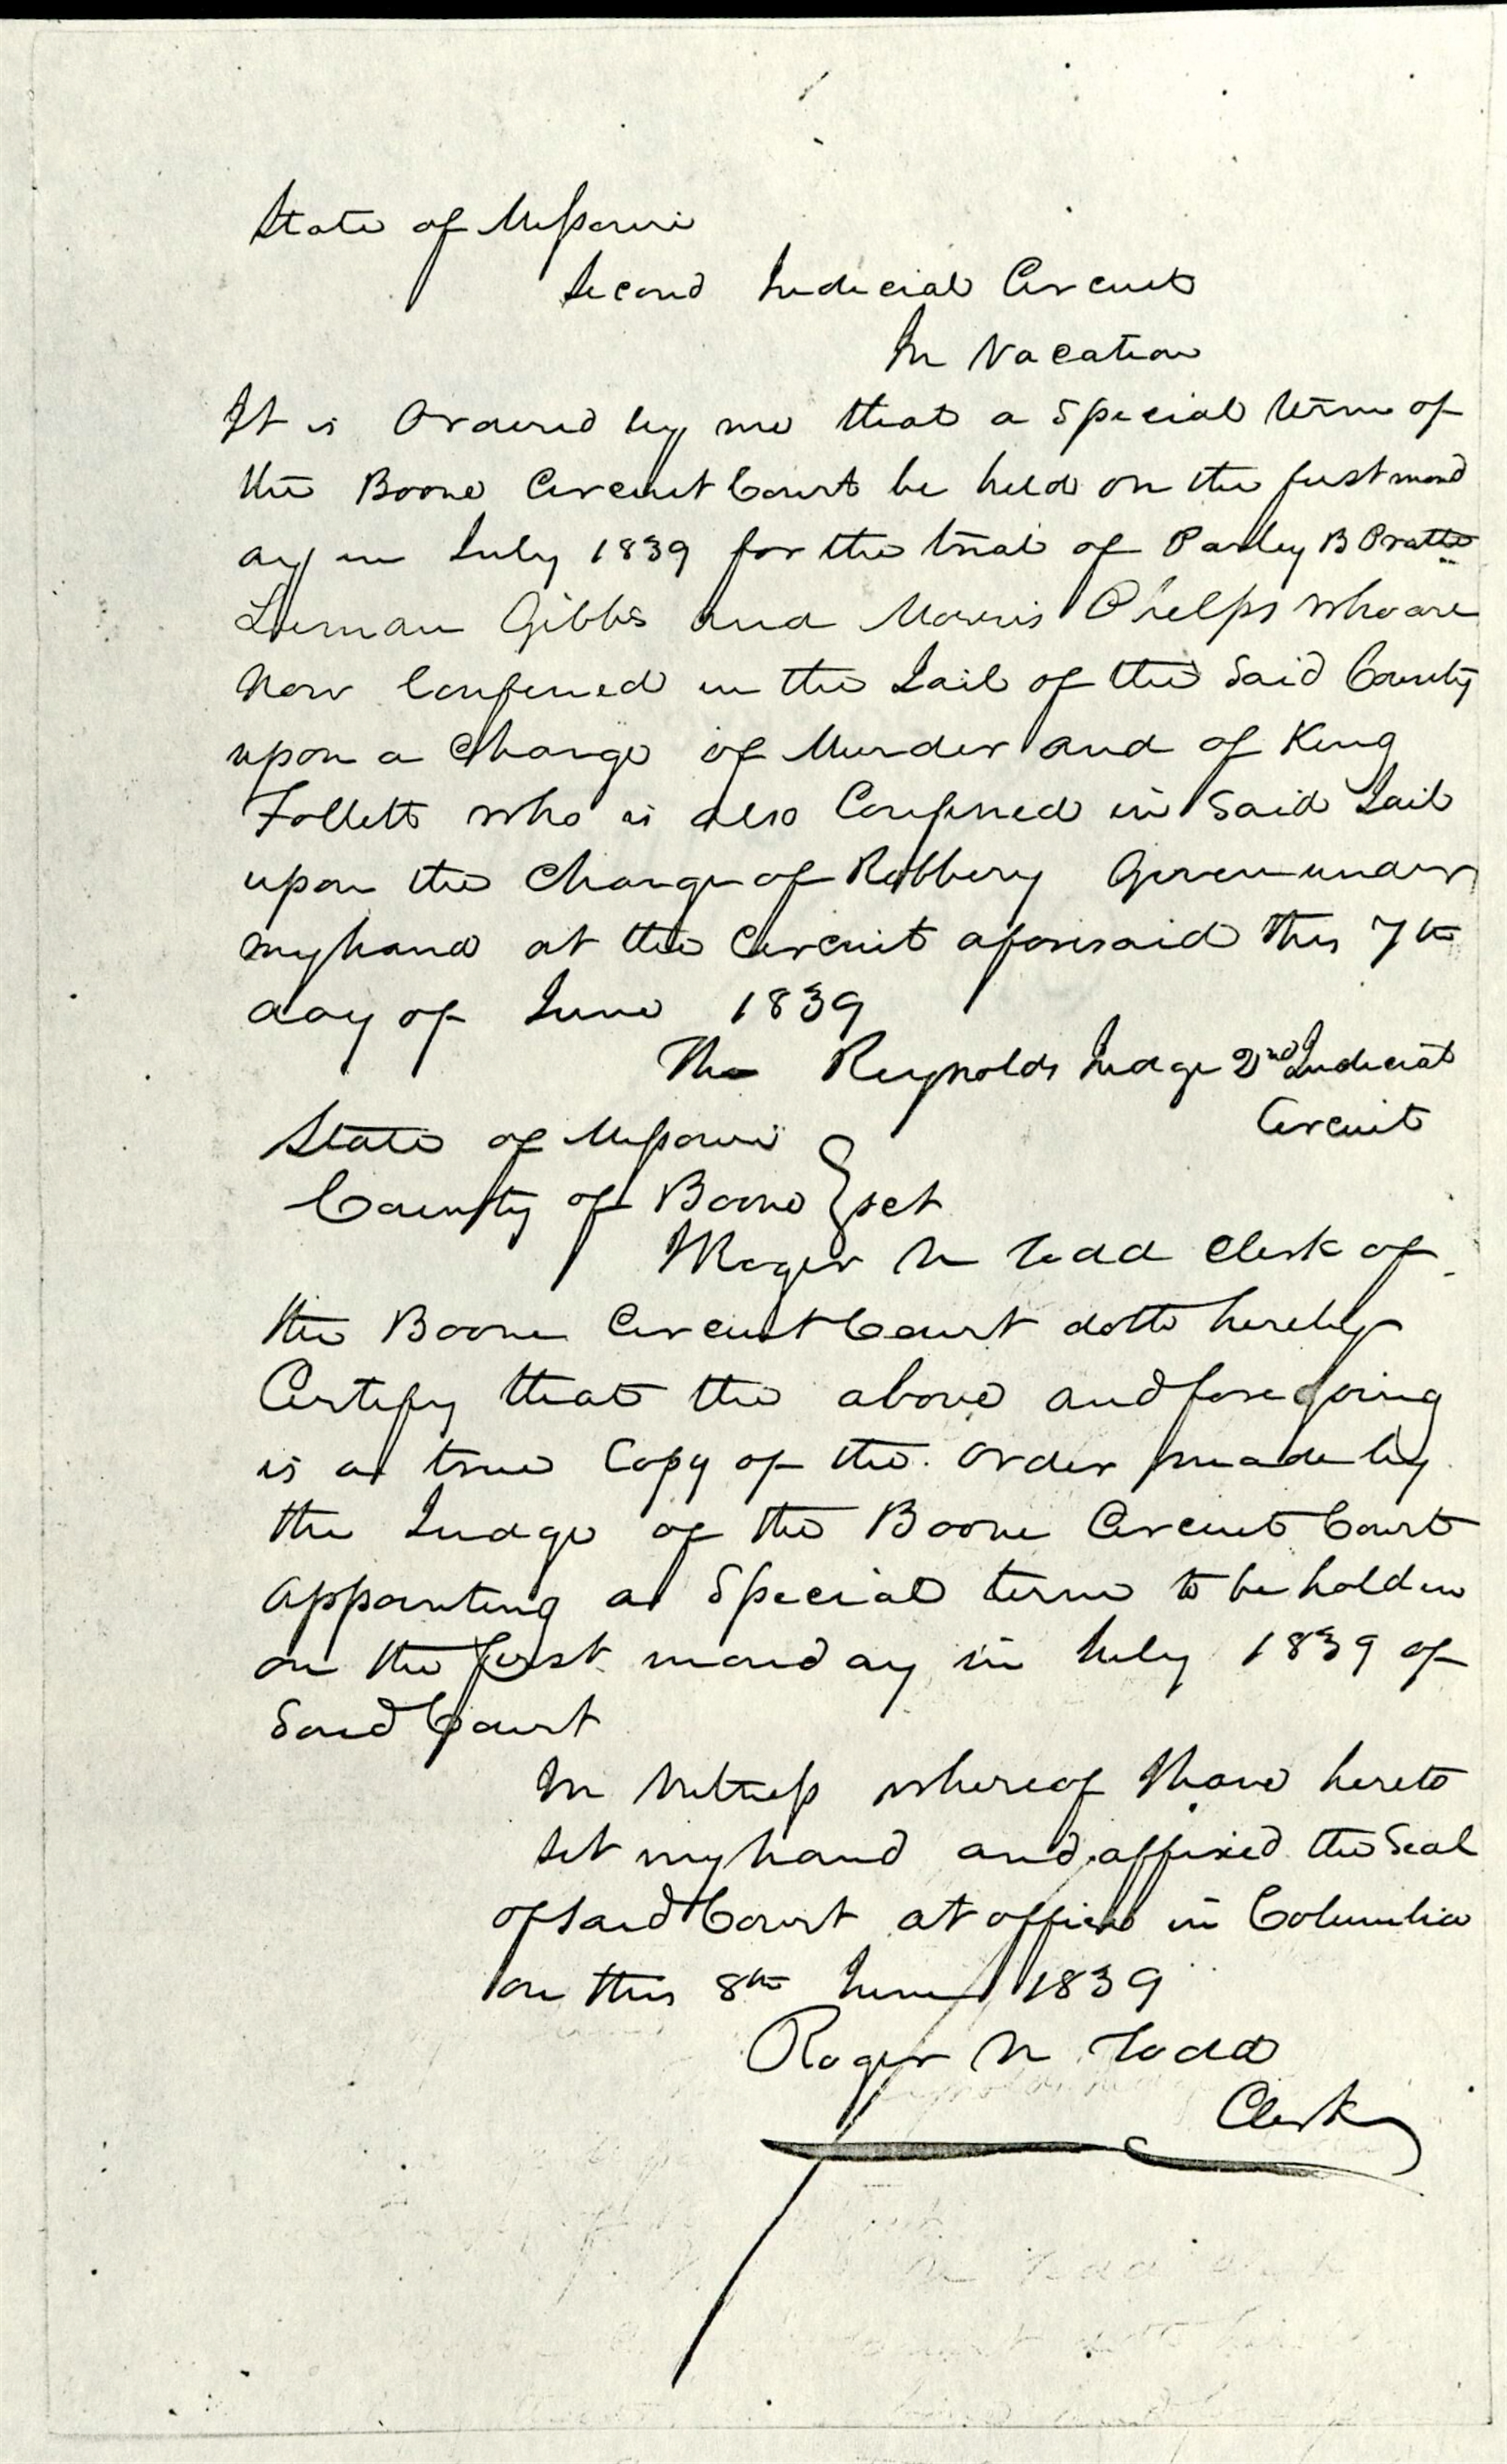 State of Missouri
Second Judicial Circuit
In Vacation
It is Ordered by me that a Special term of
the Boone Circuit Court be held on the first mond
ay in July 1839 for the trial of Parley B Pratt
Luman Gibbs and Morris Phelps who are
now Confined in the Jail of the said County
upon a Charge of Murder and of King
Follett who is also Confined in said Jail
upon the Charge of Robbery Given under
my hand at the Circuit aforesaid this 7th
day of June 1839
Tho Reynolds Judge 2nd Judicial
Circuit
State of Missouri
County of Boone } sct
I Roger N Todd Clerk of
the Boone Circuit Court doth hereby
Certify that the above and foregoing
is a true Copy of the Order made by
the Judge of the Boone Circuit Court
appointing a Special term to be holden
on the first monday in July 1839 of
Said Court
In Witness whereof I have hereto
set my hand and affixed the Seal
of said Court at office in Columbia
on this 8th June 1839
Roger N Todd
Clerk